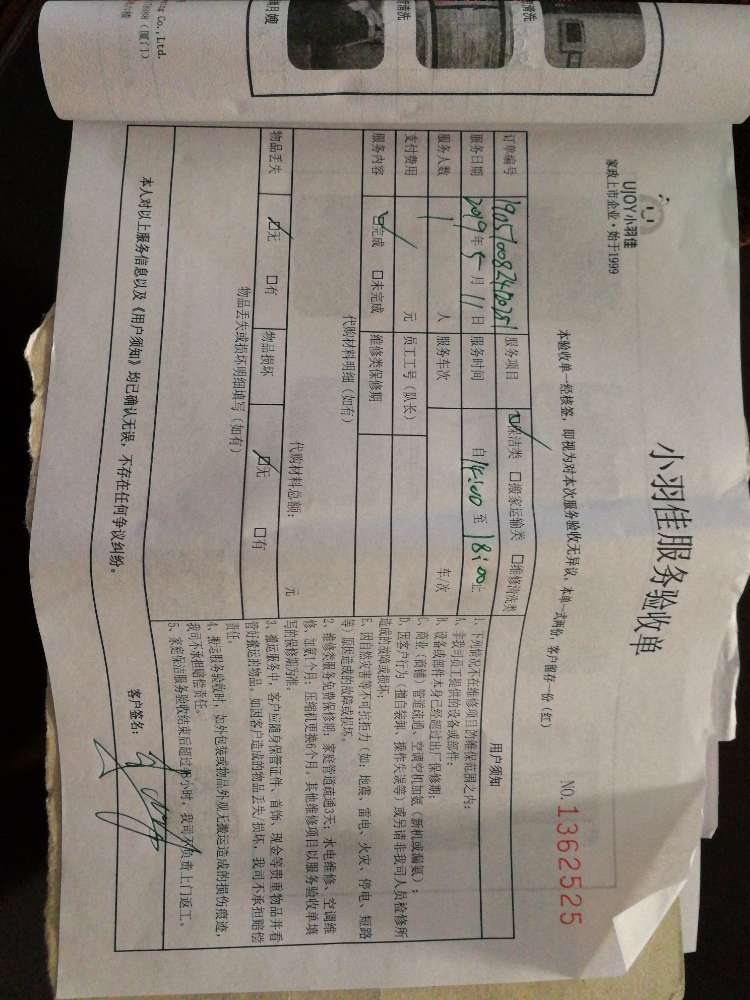 清洗
清洗
月嫂
Co.,Ltd.
(厦门)
UJOY小羽佳
家政上市企业·始于1999
小羽佳服务验收单
本验收单一经核签,即视为对本次服务验收无异议,本单一式两份,客户留存一份(红)
NO.1362525
订单编号
服务项目 ☑保洁类 □搬家运输类 □维修清洗类
服务日期 2019年5月11日 服务时间 自14:00至18:00止
服务人数 1 人 服务车次 车/次
支付费用 元 员工工号(队长)
服务内容 ☑完成 □未完成 维修类保修期
代购材料明细(如有)
代购材料总额: 元
物品丢失 ☑无 □有 物品损坏 ☑无 □有
物品丢失或损坏明细填写(如有)
用户须知
1、下列情况不在维修项目的维保范围之内:
A、非我司员工提供的设备或部件;
B、设备或部件本身已经超过出厂保修期;
C、商业(商铺)管道疏通、空调空机加氨(新机或漏氨);
D、因客户行为(擅自装卸、操作失误等)或另请非我司人员检修所
造成的故障或损坏;
E、因自然灾害等不可抗拒力(如:地震、雷电、火灾、停电、短路
等)原因造成的故障或损坏。
2、维修类服务免费保修期:家庭管道疏通3天;水电维修、空调维
修、加氨1个月;压缩机更换6个月,其他维修项目以服务验收单填
写的保修期为准。
3、搬运服务中,客户应随身保管证件、首饰、现金等贵重物品并看
管好搬运的物品,如因客户造成的物品丢失/损坏,我司不承担赔偿
责任。
4、搬运服务验收时,如外包装或物品外观无搬运造成的损伤痕迹,
我司不承担赔偿责任。
5、家庭保洁服务验收结束后超过小时,我司不负责上门返工。
本人对以上服务信息以及《用户须知》均已确认无误,不存在任何争议纠纷。
客户签名: